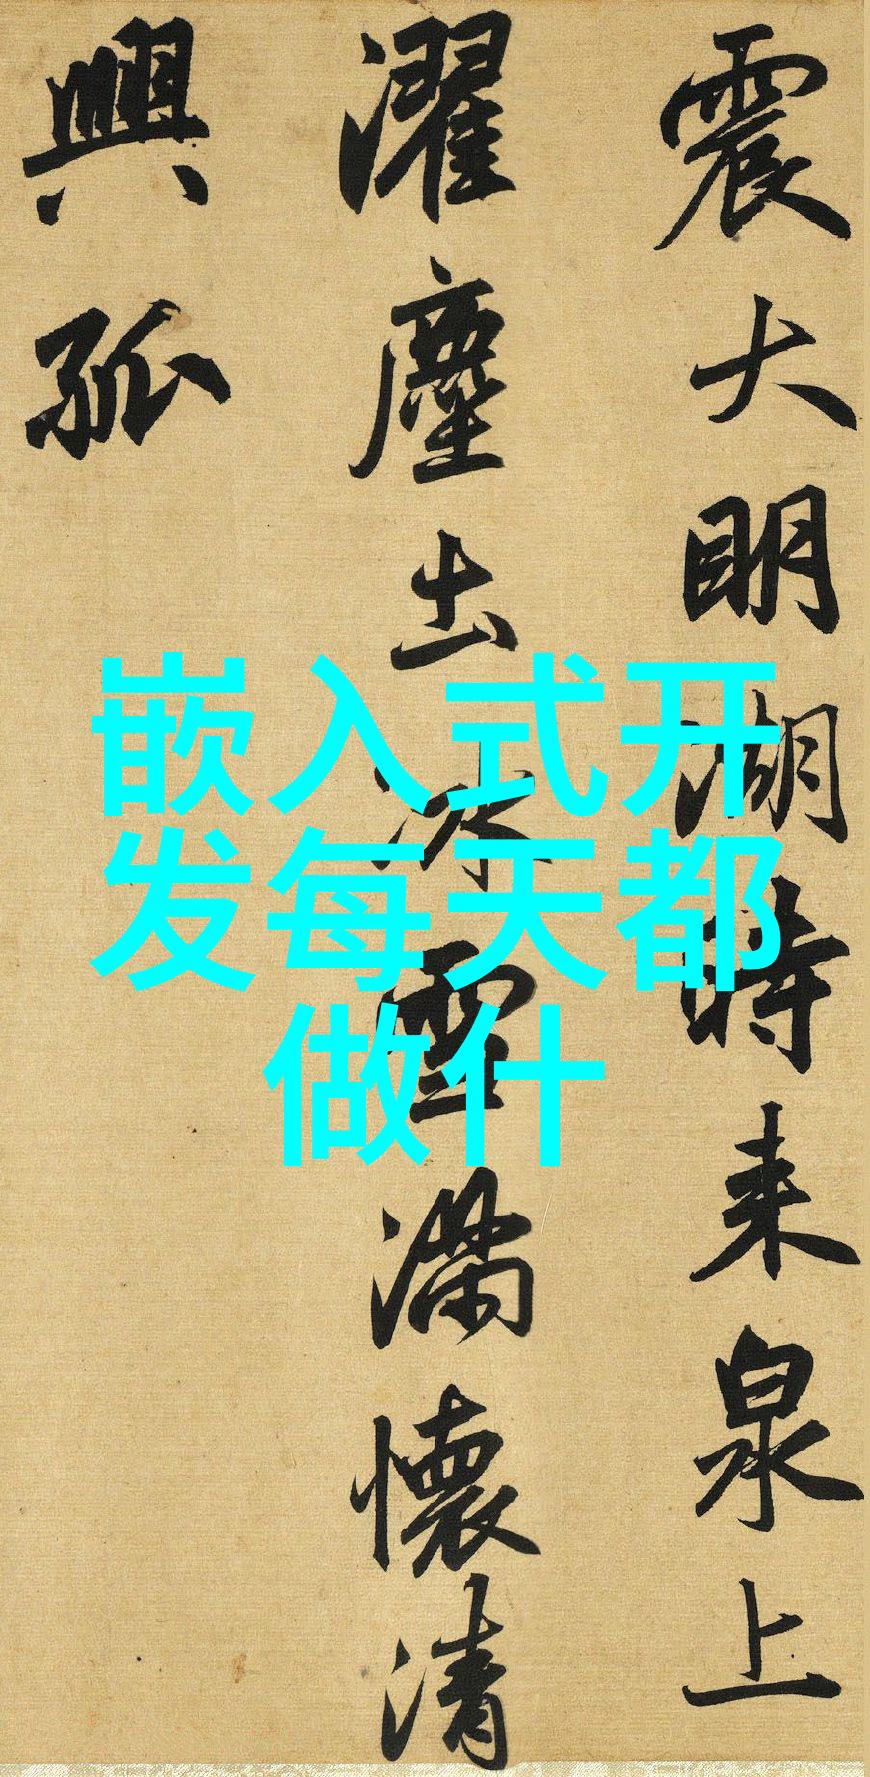 震大明湖時来泉上
濯塵土冰雪滿懷清
興孤
嵌入式开
发每天都
做什